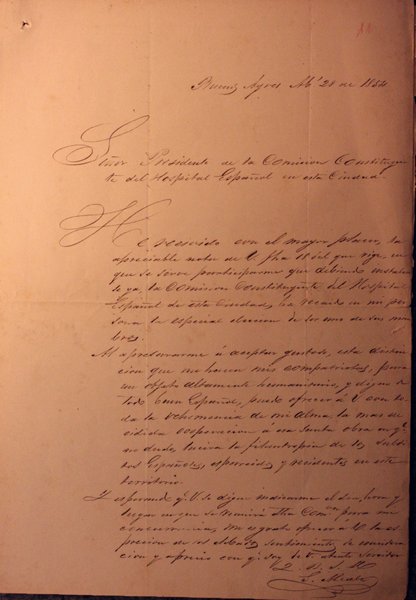 11
Buenos Ayres Ab.l 28 de 1854
Señor Presidente de la Comision Constituyen
te del Hospital Español en esta Ciudad.
He recivido con el mayor placer, la
apreciable nota de V. fha 18 del que rige, en
que se sirve participarme que debiendo instalar
se ya, la Comision Constituyente del Hospital
Español de esta Ciudad, ha recaido en mi per
sona la especial eleccion de ser uno de sus miem
bros.
Al apresurarme á aceptar gustoso, esta distin
cion que me hacen mis compatriotas, para
un objeto altamente humanitario, y digno de
todo buen Español, puedo ofrecer á V. con to
da la vehemencia de mi alma, la mas de
cidida cooperacion á esa Santa obra en q.e
no dudo, lucira la filantropia de los subdi
tos Españoles, esparcidos y residentes en este
territorio.
Y esperando q.e V. se digne indicarme el dia, hora y
lugar en que se reunirá dha Com.on para mi
concurrencia, me es grato ofrecer á V. la es
presion de mis debidos sentimientos de considera
cion y aprecio con q.e soy de V. atento Servidor
Q. B. S. M.